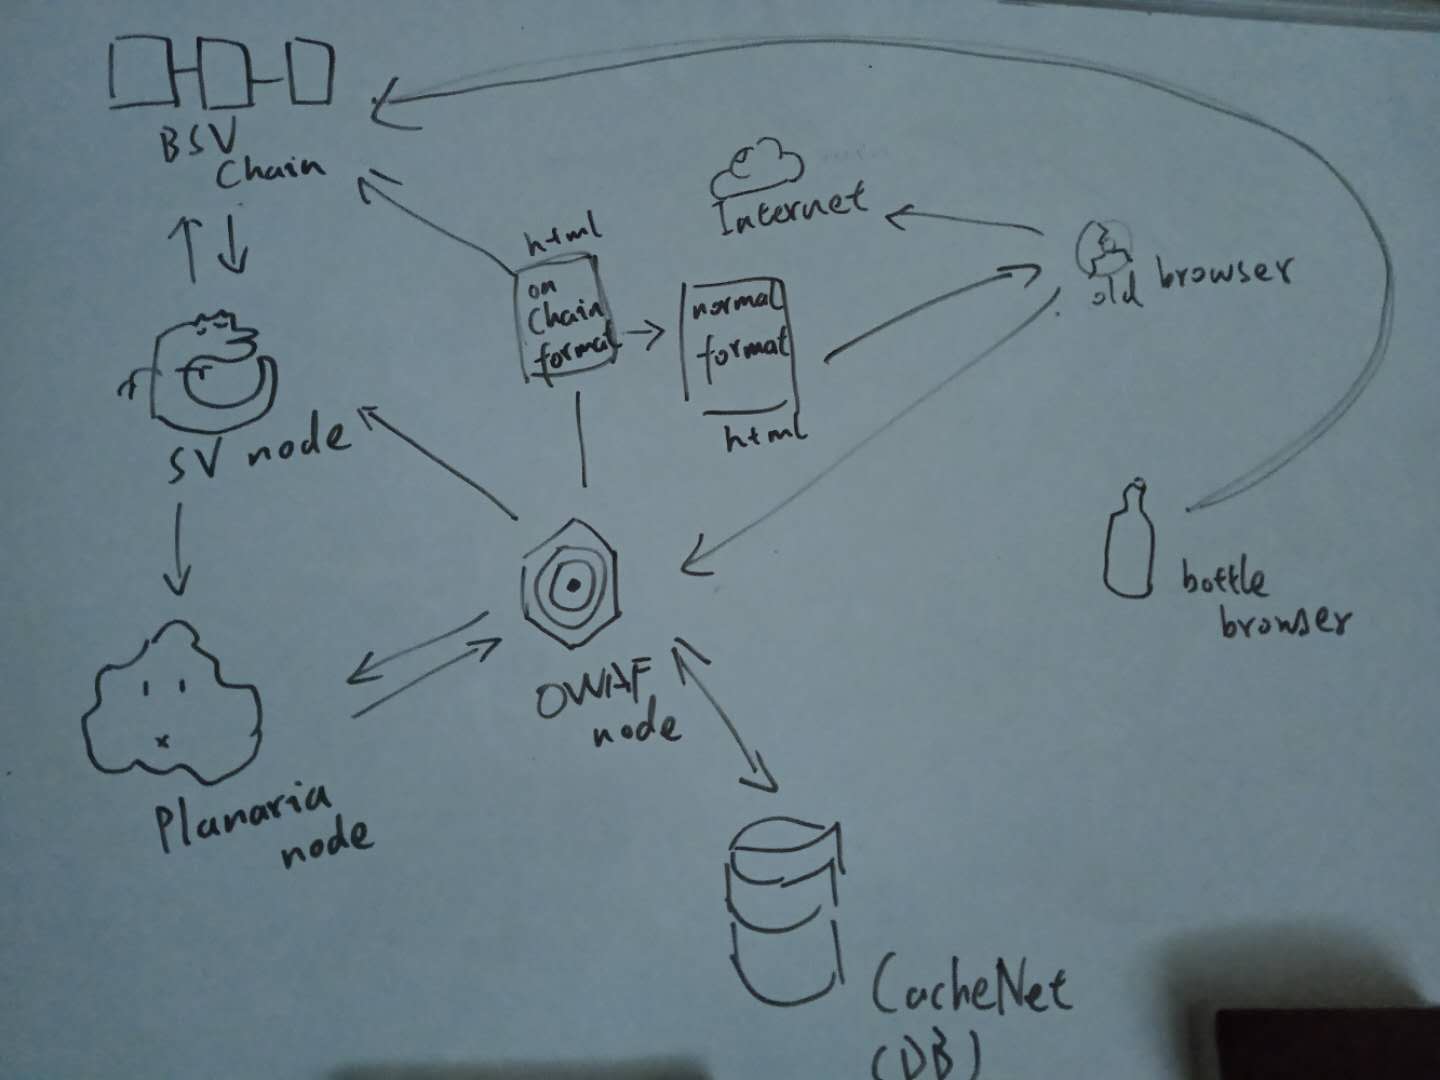 BSV
Chain
Internet
html
on
Chain
format
normal
format
html
old browser
SV node
bottle
browser
OWAF
node
Planaria
node
CacheNet
(DB)